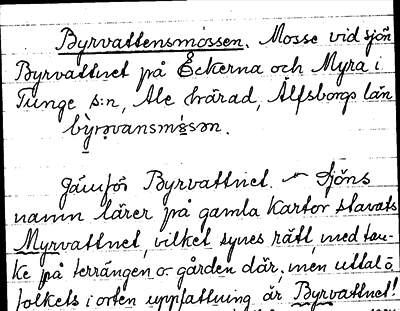 Byrvattensmossen. Mosse vid sjön
Byrvattnet på Eckerna och Myra i
Tunge s:n, Ale härad, Älfsborgs län
byrəvansmåsən.
Jämför Byrvattnet. – Sjöns
namn lärer på gamla kartor stavats
Myrvattnet, vilket synes rätt, med tan-
ke på terrängen o. gården där, men uttal o
folkets i orten uppfattning är Byrvattnet!